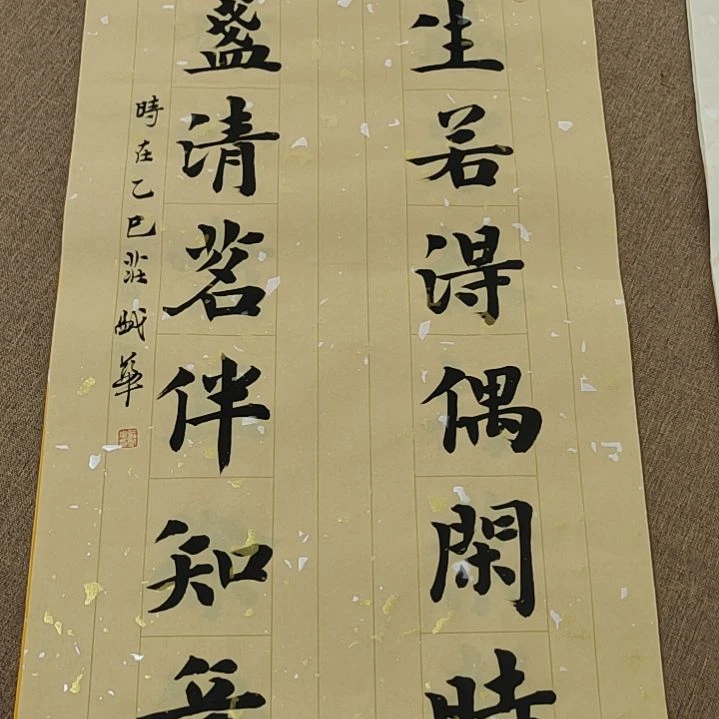 生若得偶閑時
盞清茗伴知音
時在乙巳莊
華